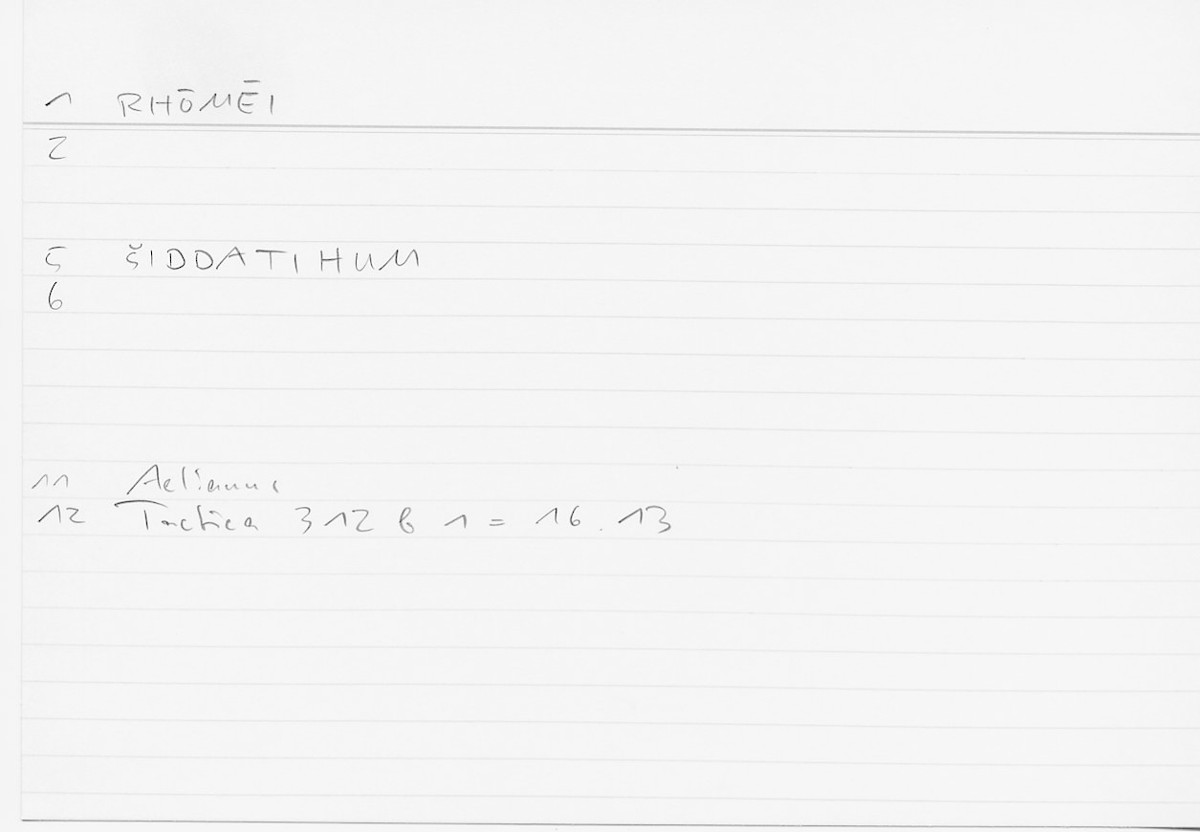 1 RHŌMĒI
2
5 ŠIDDATIHUM
6
11 Aelianus
12 Tactica 312 b 1 = 16.13